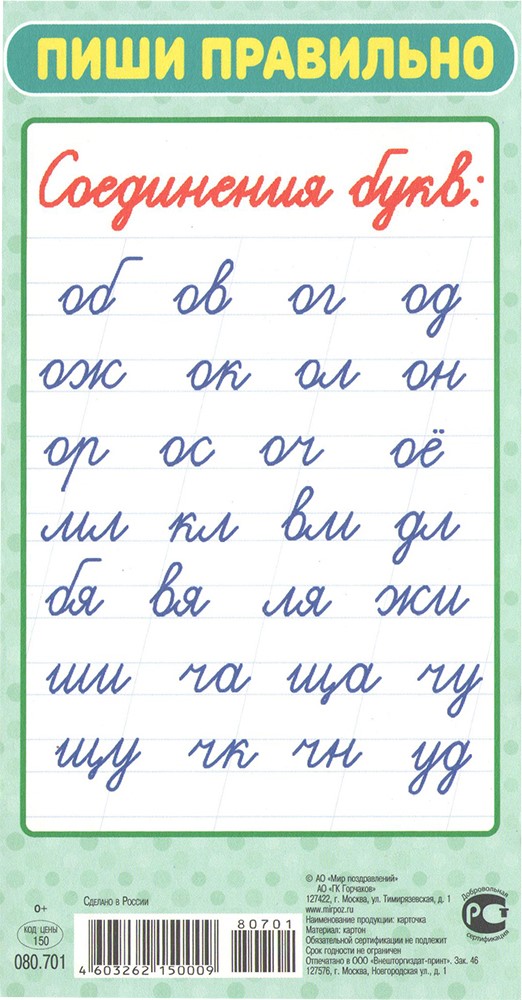 ПИШИ ПРАВИЛЬНО
Соединения букв:
об ов ог од
ож ок ол он
ор ос оч оё
мл кл вм дл
бя вя ля жи
ши ча ща чу
щу чк чн уд
© АО «Мир поздравлений»
АО «ГК Горчаков»
127422, г. Москва, ул. Тимирязевская, д. 1
www.mirpoz.ru
Наименование продукции: карточка
Материал: картон
Обязательной сертификации не подлежит
Срок годности не ограничен
Отпечатано в ООО «Внешторгиздат-принт». Зак. 46
127576, г. Москва, Новгородская ул., д. 1
Сделано в России
0+
КОД ЦЕНЫ
150
080.701
80701
4 603262 150009
Добровольная
РСТ
сертификация